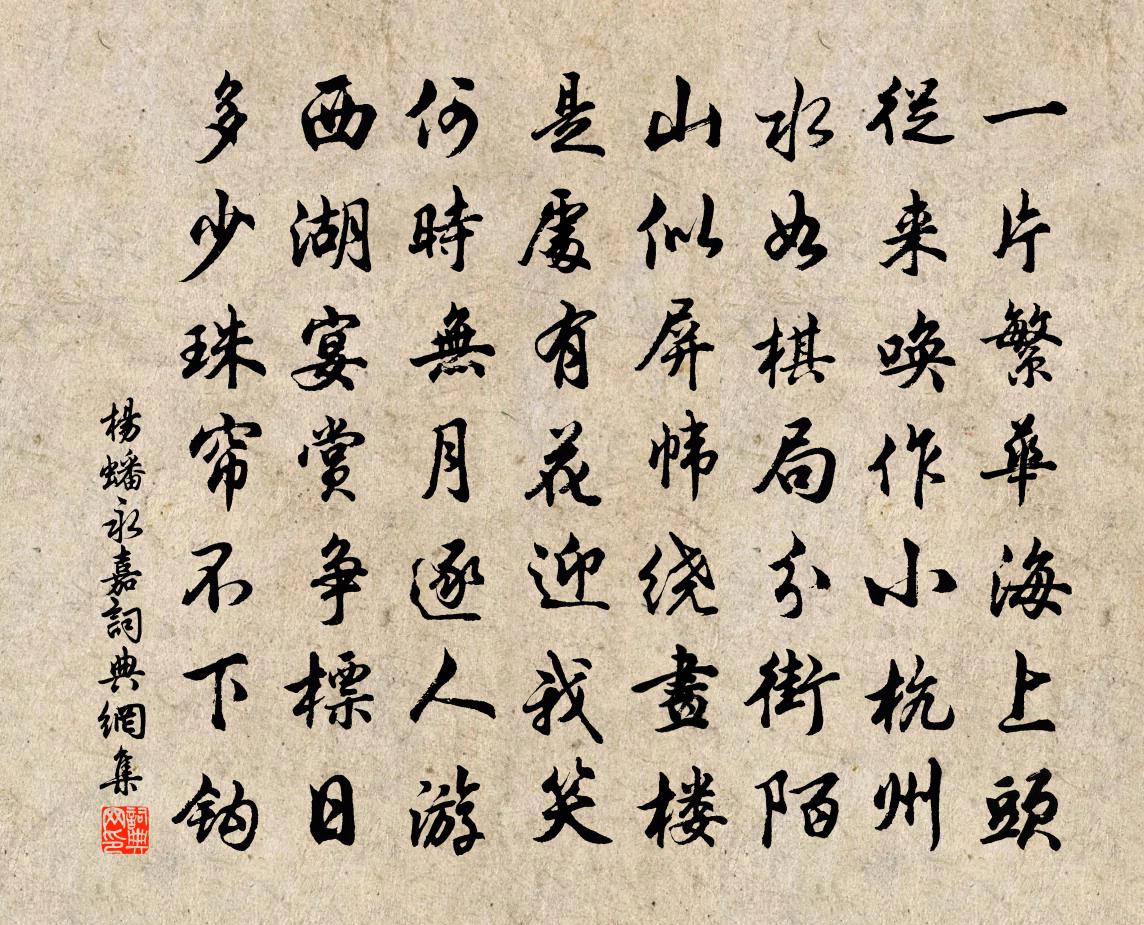 一片繁華海上頭
從来唤作小杭州
水如棋局分街陌
山似屏帏绕畫楼
是處有花迎我笑
何時無月逐人游
西湖宴赏争標日
多少珠帘不下钩
楊蟠永嘉詞典網集
詞典
网印